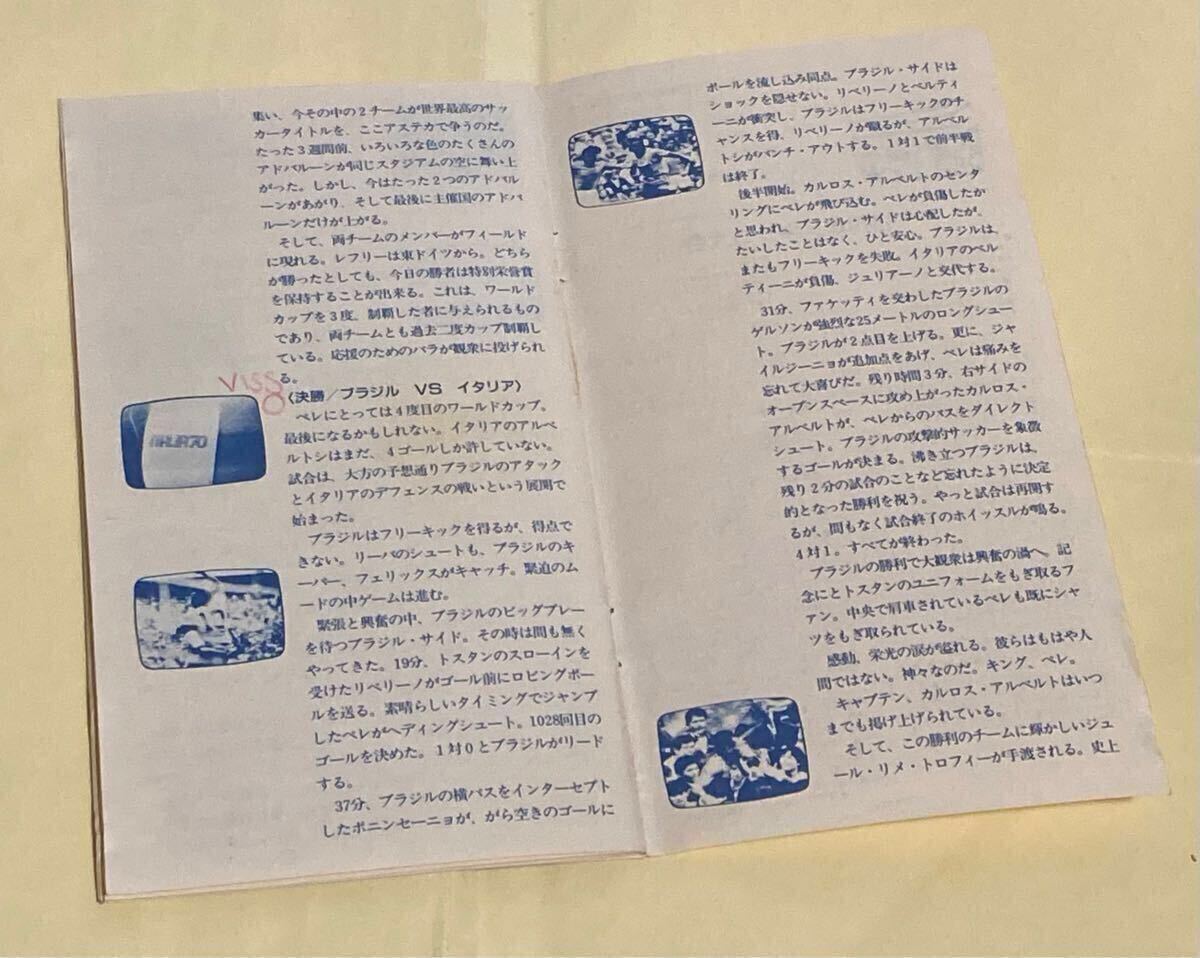 集い、今その中の2チームが世界最高のサッ
カータイトルを、ここアステカで争うのだ。
たった3週間前、いろいろな色のたくさんの
アドバルーンが同じスタジアムの空に舞い上
がった。しかし、今はたった2つのアドバル
ーンがあがり、そして最後に主催国のアドバ
ルーンだけが上がる。
そして、両チームのメンバーがフィールド
に現れる。レフリーは東ドイツから。どちら
が勝ったとしても、今日の勝者は特別栄誉賞
を保持することが出来る。これは、ワールド
カップを3度、制覇した者に与えられるもの
であり、両チームとも過去二度カップ制覇し
ている。応援のためのバラが観衆に投げられ
る。
〈決勝/ブラジル VS イタリア〉
ペレにとっては4度目のワールドカップ。
最後になるかもしれない。イタリアのアルベ
ルトシはまだ、4ゴールしか許していない。
試合は、大方の予想通りブラジルのアタック
とイタリアのデフェンスの戦いという展開で
始まった。
ブラジルはフリーキックを得るが、得点で
きない。リーバのシュートも、ブラジルのキ
ーパー、フェリックスがキャッチ。緊迫のム
ードの中ゲームは進む。
緊張と興奮の中、ブラジルのビッグプレー
を待つブラジル・サイド。その時は間も無く
やってきた。19分、トスタンのスローインを
受けたリベリーノがゴール前にロビングボー
ルを送る。素晴らしいタイミングでジャンプ
したペレがヘディングシュート。1028回目の
ゴールを決めた。1対0とブラジルがリード
する。
37分、ブラジルの横パスをインターセプト
したボニンセーニョが、がら空きのゴールに
ボールを流し込み同点。ブラジル・サイドは
ショックを隠せない。リベリーノとベルティ
ーニが衝突し、ブラジルはフリーキックのチ
ャンスを得、リベリーノが蹴るが、アルベル
トシがパンチ・アウトする。1対1で前半戦
は終了。
後半開始。カルロス・アルベルトのセンタ
リングにペレが飛び込む。ペレが負傷したか
と思われ、ブラジル・サイドは心配したが、
たいしたことはなく、ひと安心。ブラジルは、
またもフリーキックを失敗。イタリアのベル
ティーニが負傷、ジュリアーノと交代する。
31分、ファケッティを交わしたブラジルの
ゲルソンが強烈な25メートルのロングシュー
ト。ブラジルが2点目を上げる。更に、ジャ
イルジーニョが追加点をあげ、ペレは痛みを
忘れて大喜びだ。残り時間3分、右サイドの
オープンスペースに攻め上がったカルロス・
アルベルトが、ペレからのパスをダイレクト
シュート。ブラジルの攻撃的サッカーを象徴
するゴールが決まる。沸き立つブラジルは、
残り2分の試合のことなど忘れたように決定
的となった勝利を祝う。やっと試合は再開す
るが、間もなく試合終了のホイッスルが鳴る。
4対1。すべてが終わった。
ブラジルの勝利で大観衆は興奮の渦へ。記
念にとトスタンのユニフォームをもぎ取るフ
ァン。中央で肩車されているペレも既にシャ
ツをもぎ取られている。
感動、栄光の涙が溢れる。彼らはもはや人
間ではない。神々なのだ。キング、ペレ。
キャプテン、カルロス・アルベルトはいつ
までも掲げ上げられている。
そして、この勝利のチームに輝かしいジュ
ール・リメ・トロフィーが手渡される。史上